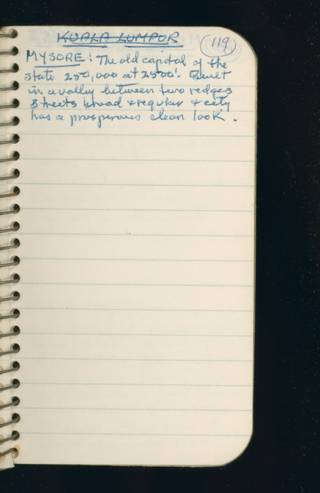 KUALA LUMPUR
119
MYSORE! The old capital of the
state 250,000 at 2500'. Built
in a valley between two redges
streets broad & regular & city
has a prosperous clean look.